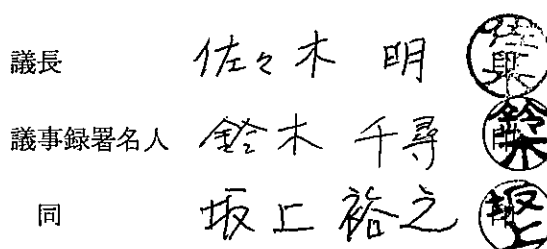 議長 佐々木 明
議事録署名人 鈴木 千尋 鈴木
同 坂上 裕之 坂上